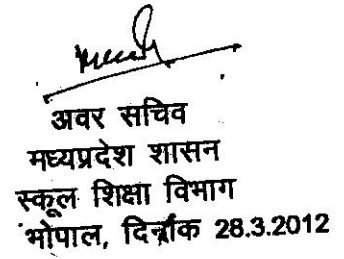 अवर सचिव
मध्यप्रदेश शासन
स्कूल शिक्षा विभाग
भोपाल, दिनाँक 28.3.2012